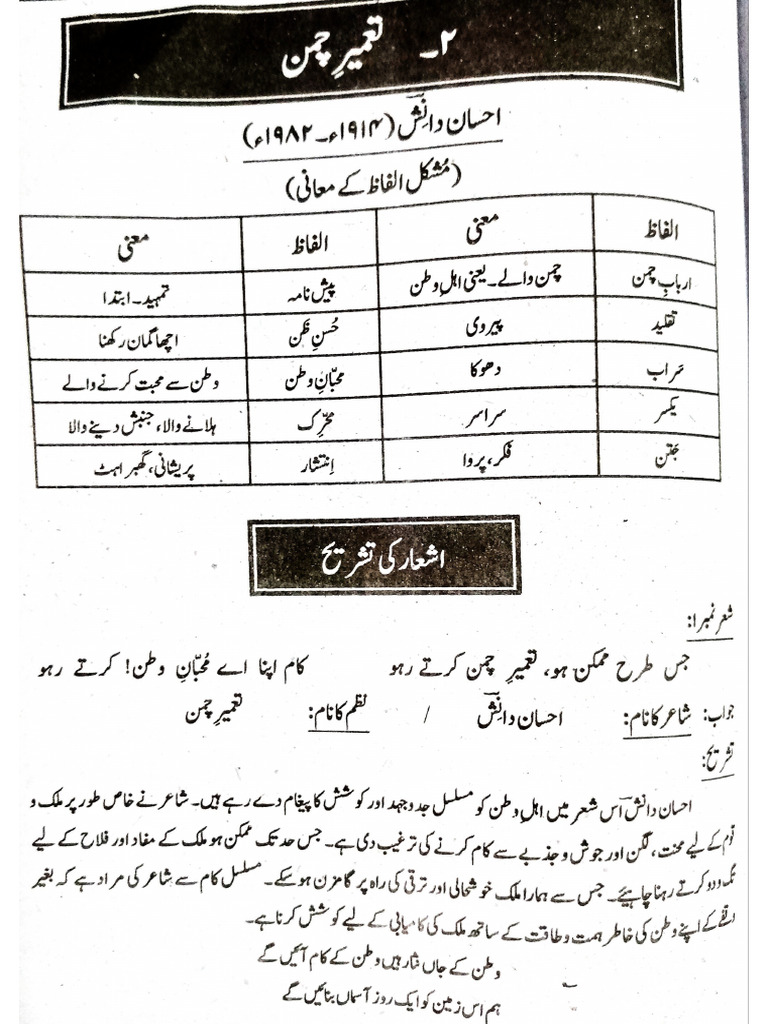 ۲۔ تعمیرِ چمن
احسان دانشؔ (۱۹۱۴ء۔۱۹۸۲ء)
(مُشکل الفاظ کے معانی)
الفاظ معنی الفاظ معنی
اربابِ چمن چمن والے۔یعنی اہلِ وطن پیش نامہ تمہید۔ابتدا
تقلید پیروی حُسنِ ظَن اچھا گمان رکھنا
سَراب دھوکا محبّانِ وطن وطن سے محبت کرنے والے
یکسر سراسر محرّک ہلانے والا، جنبش دینے والا
جَتن فکر، پروا اِنتشار پریشانی، گھبراہٹ
اشعار کی تشریح
شعر نمبر ۱:
جس طرح ممکن ہو، تعمیرِ چمن کرتے رہو کام اپنا اے مُحبّانِ وطن! کرتے رہو
جواب: شاعر کا نام: احسان دانشؔ / نظم کا نام: تعمیرِ چمن
تشریح:
احسان دانشؔ اس شعر میں اہلِ وطن کو مسلسل جدوجہد اور کوشش کا پیغام دے رہے ہیں۔ شاعر نے خاص طور پر ملک و
قوم کے لیے محنت، لگن اور جوش و جذبے سے کام کرنے کی ترغیب دی ہے۔ جس حد تک ممکن ہو ملک کے مفاد اور فلاح کے لیے
تگ و دو کرتے رہنا چاہیئے۔ جس سے ہمارا ملک خوشحالی اور ترقی کی راہ پر گامزن ہوسکے۔ مسلسل کام سے شاعر کی مراد ہے کہ بغیر
وقفے کے اپنے وطن کی خاطر ہمت و طاقت کے ساتھ ملک کی کامیابی کے لیے کوشش کرنا ہے۔
وطن کے جاں نثار ہیں وطن کے کام آئیں گے
ہم اس زمین کو ایک روز آسماں بنائیں گے